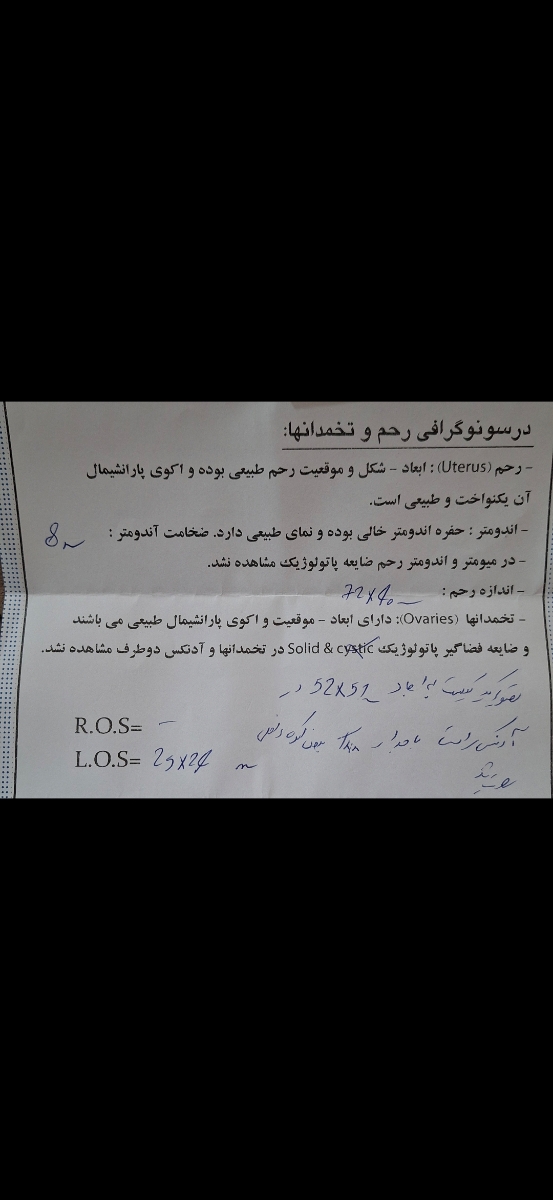 درسونوگرافی رحم و تخمدانها:
- رحم (Uterus) : ابعاد - شکل و موقعیت رحم طبیعی بوده و اکوی پارانشیمال
آن یکنواخت و طبیعی است.
- اندومتر : حفره اندومتر خالی بوده و نمای طبیعی دارد. ضخامت آندومتر : 8
- در میومتر و اندومتر رحم ضایعه پاتولوژیک مشاهده نشد.
- اندازه رحم : 72X40
- تخمدانها (Ovaries): دارای ابعاد - موقعیت و اکوی پارانشیمال طبیعی می باشند
و ضایعه فضاگیر پاتولوژیک Solid & cystic در تخمدانها و آدنکس دوطرف مشاهده نشد.
تصویر یک کیست به ابعاد 52X51 در
آدنکس راست با جدار بدون
R.O.S= -
L.O.S= 29X24